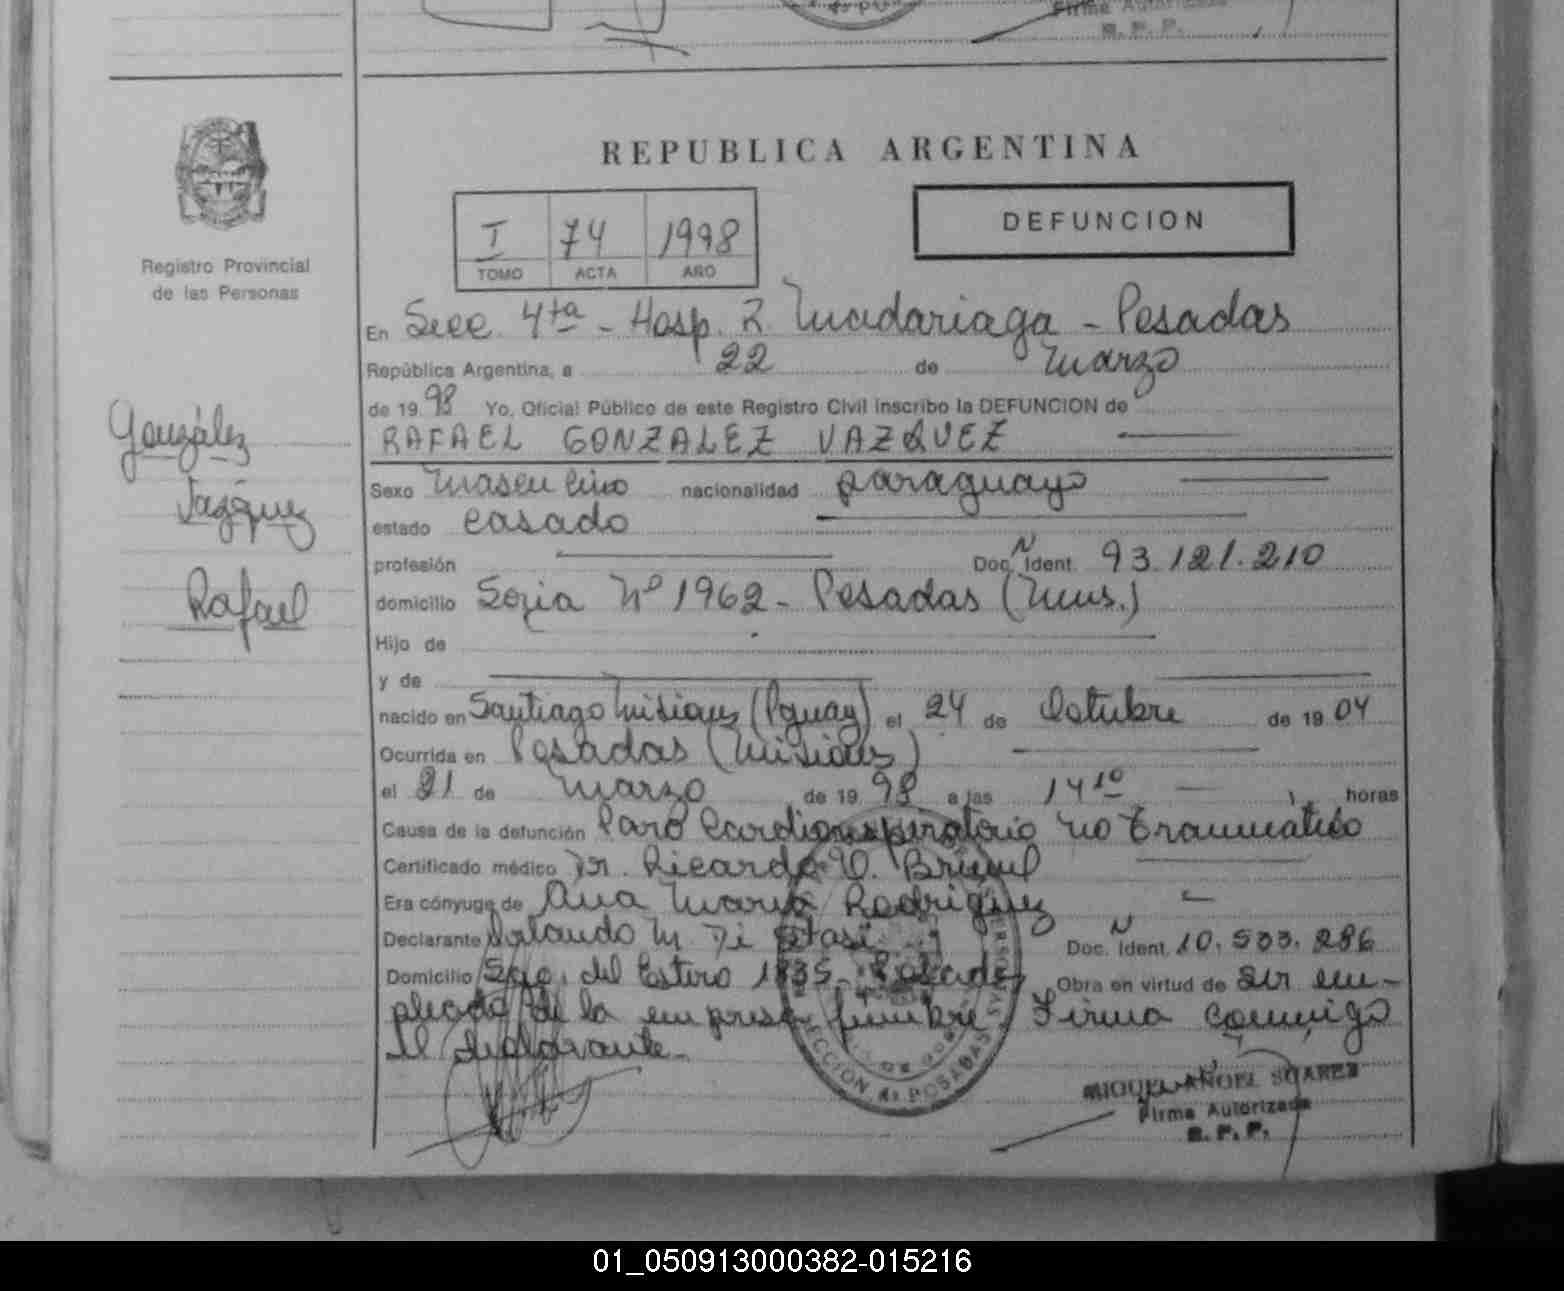 Firma Autorizada
R. P. P.
REPUBLICA ARGENTINA
I 74 1998
TOMO ACTA AÑO
DEFUNCION
Registro Provincial
de las Personas
González
Vázquez
Rafael
En Secc 4ta - Hosp. R. Madariaga - Posadas
República Argentina, a 22 de marzo
de 1998 Yo, Oficial Público de este Registro Civil inscribo la DEFUNCION de
RAFAEL GONZALEZ VAZQUEZ
Sexo masculino nacionalidad paraguayo
estado casado
profesión Doc. N Ident. 93.121.210
domicilio Soria Nº 1962 - Posadas (Mnes.)
Hijo de
y de
nacido en Santiago Misiones (Pguay) el 24 de Octubre de 1904
Ocurrida en Posadas (Misiones)
el 21 de marzo de 1998 a las 14 10 horas
Causa de la defunción Paro Cardiorespiratorio no traumático
Certificado médico Dr. Ricardo
Era cónyuge de Ana María Rodríguez
Declarante Orlando M. Di Stasi Doc. N Ident. 10.533.286
Domicilio Sgo. del Estero 1835 - Posadas Obra en virtud de ser em-
pleado de la empresa fúnebre. Firma conmigo
el declarante.
SECCION 4ª POSADAS
MIGUEL ANGEL SUAREZ
Firma Autorizada
R. P. P.
01_050913000382-015216